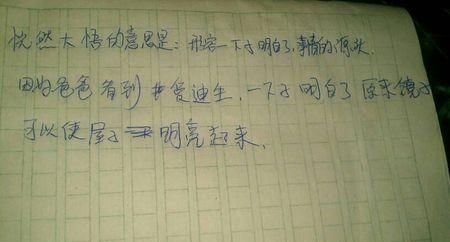 恍然大悟的意思是：形容一下子明白了事情的源头.
因为爸爸看到爱迪生.一下子明白了原来镜子
可以使屋子明亮起来.